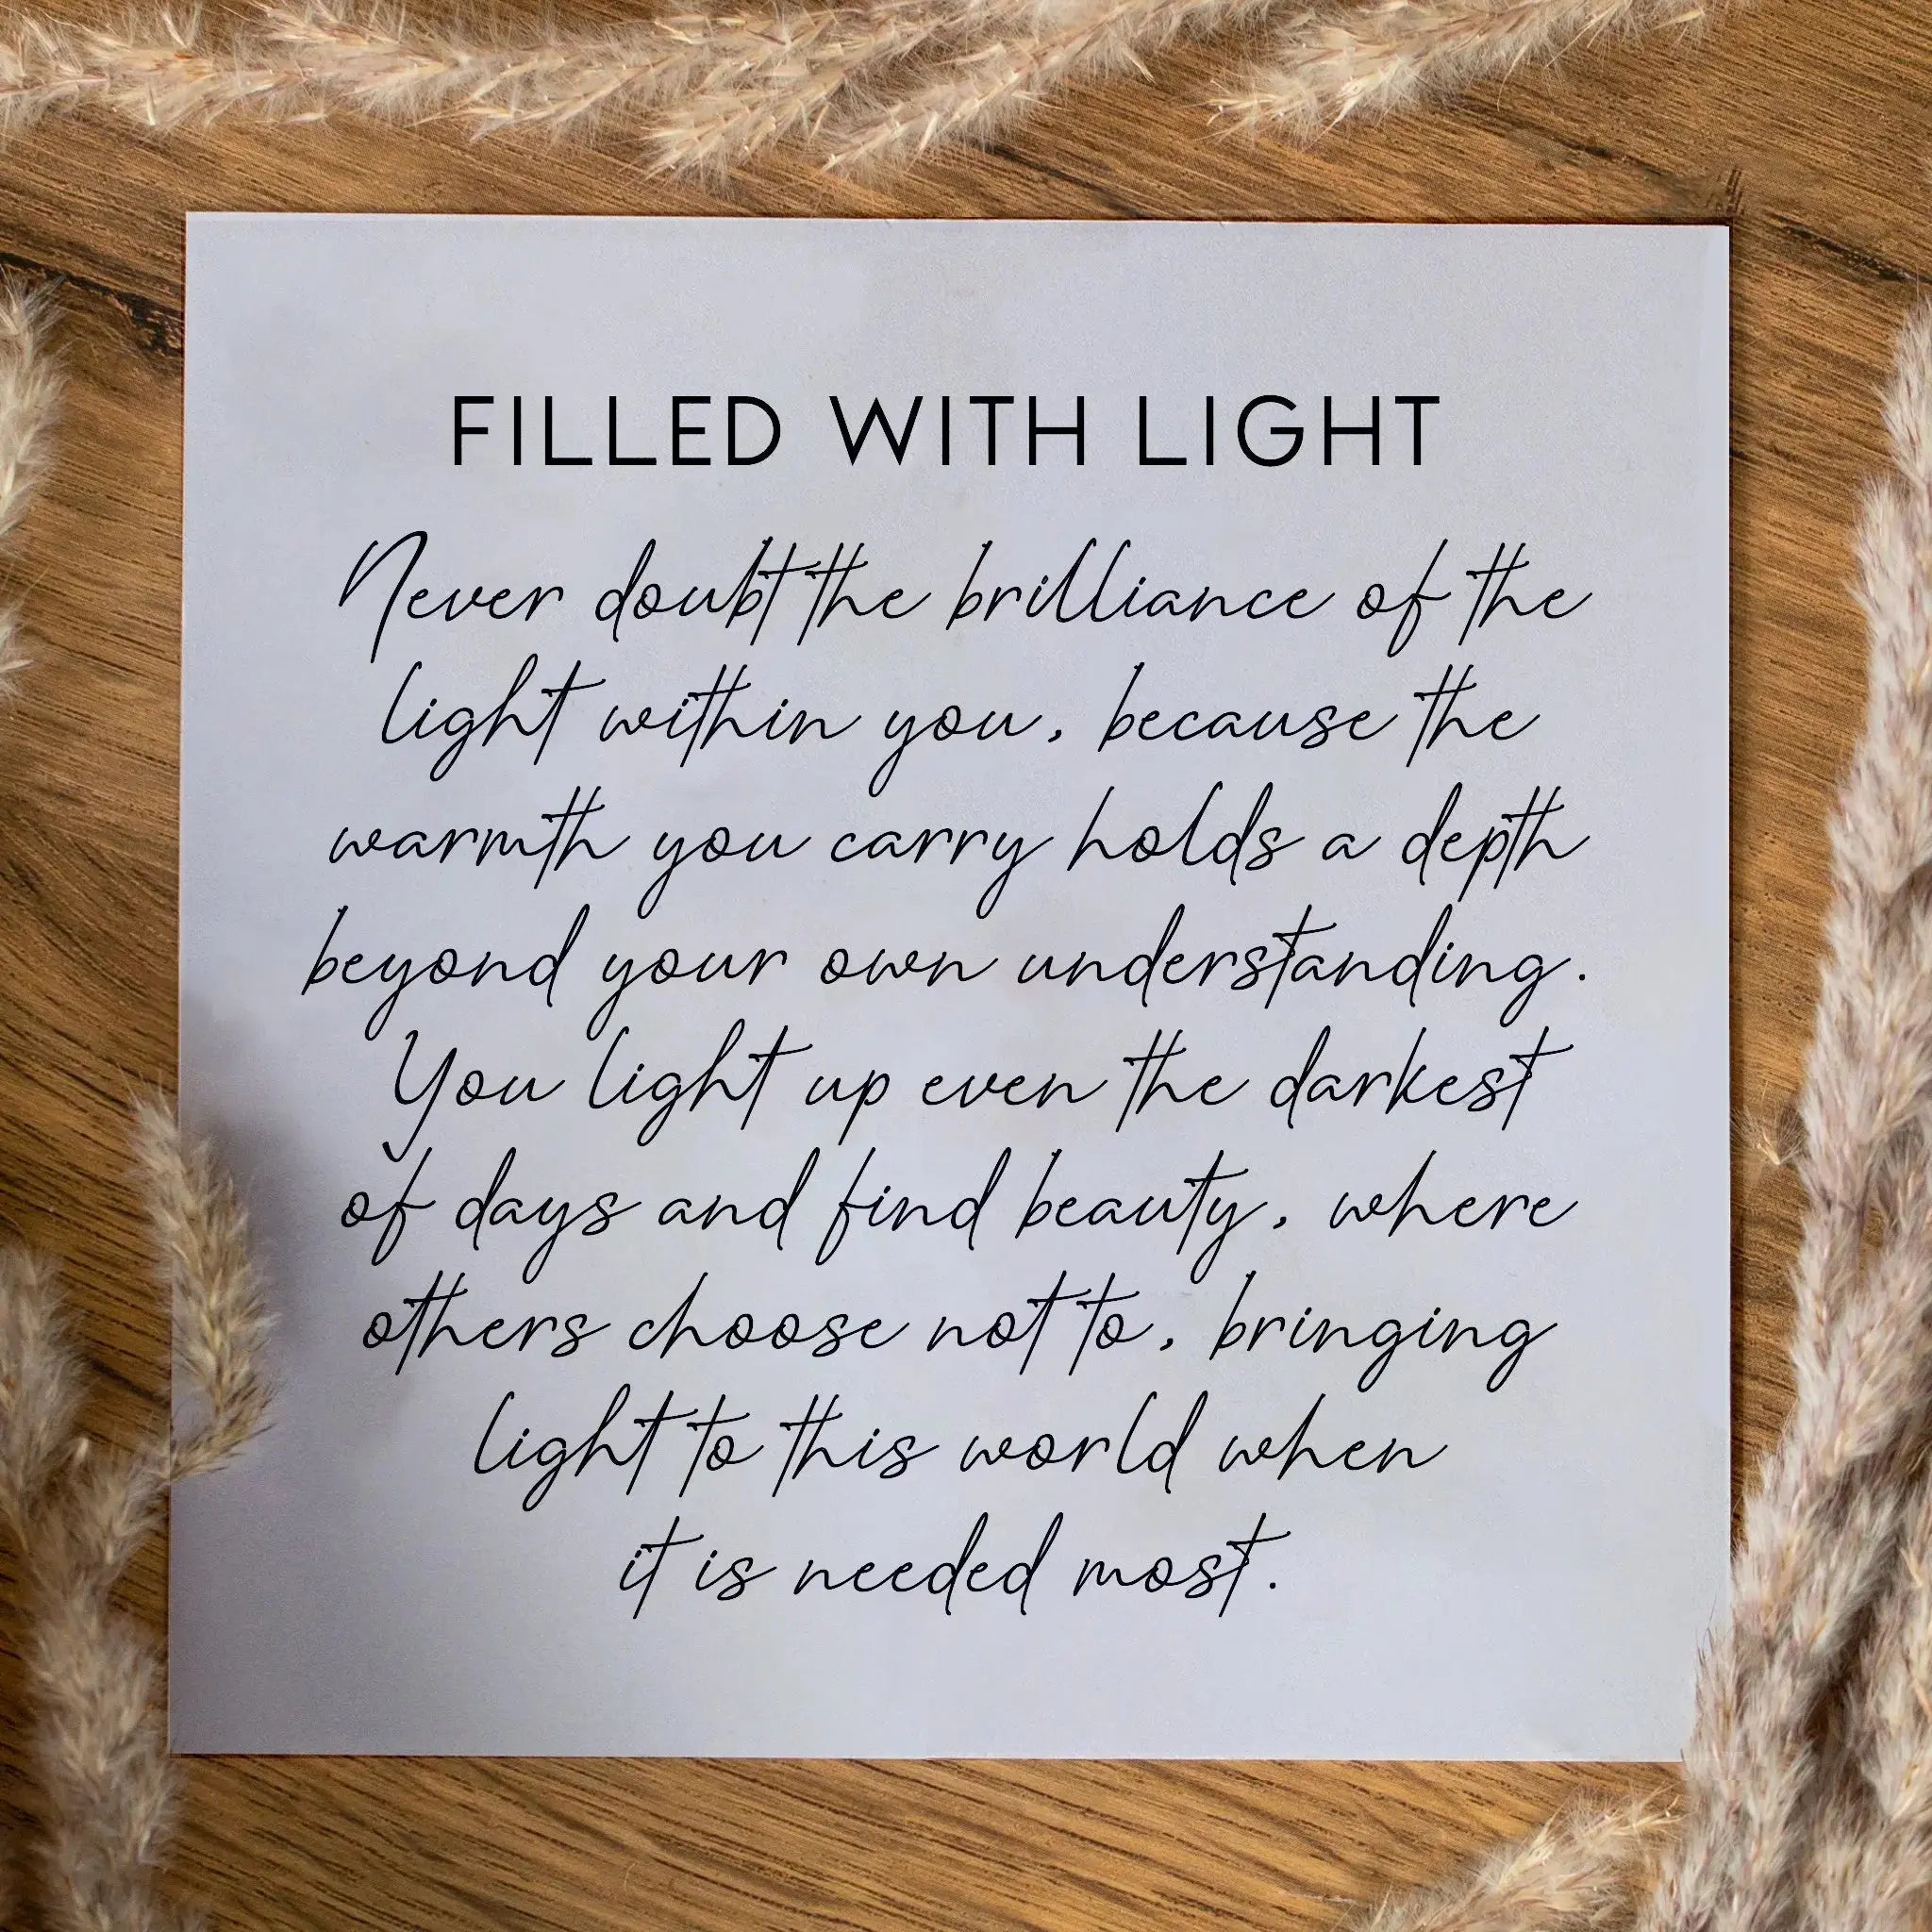 FILLED WITH LIGHT
Never doubt the brilliance of the
light within you, because the
warmth you carry holds a depth
beyond your own understanding.
You light up even the darkest
of days and find beauty, where
others choose not to, bringing
light to this world when
it is needed most.